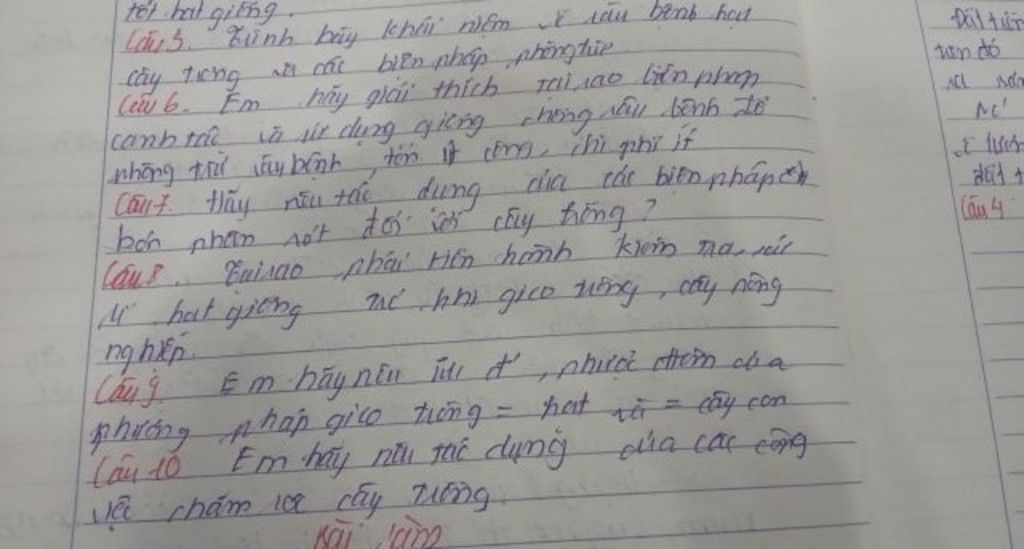 tốt hạt giống.
Câu 5. Trình bày khái niệm về sâu bệnh hại
cây trồng và các biện pháp phòng trừ
Câu 6. Em hãy giải thích tại sao biện pháp
canh tác và sử dụng giống chống sâu bệnh để
phòng trừ sâu bệnh, tốn ít công, chi phí ít
Câu 7. Hãy nêu tác dụng của các biện pháp
bón phân đối với cây trồng?
Câu 8. Tại sao phải tiến hành kiểm tra, xử
lí hạt giống khi gieo trồng, cây nông
nghiệp.
Câu 9. Em hãy nêu ưu đ', nhược điểm của
phương pháp gieo trồng = hạt và = cây con
Câu 10 Em hãy nêu tác dụng của các công
việc chăm sóc cây trồng
Bài làm
Câu 4